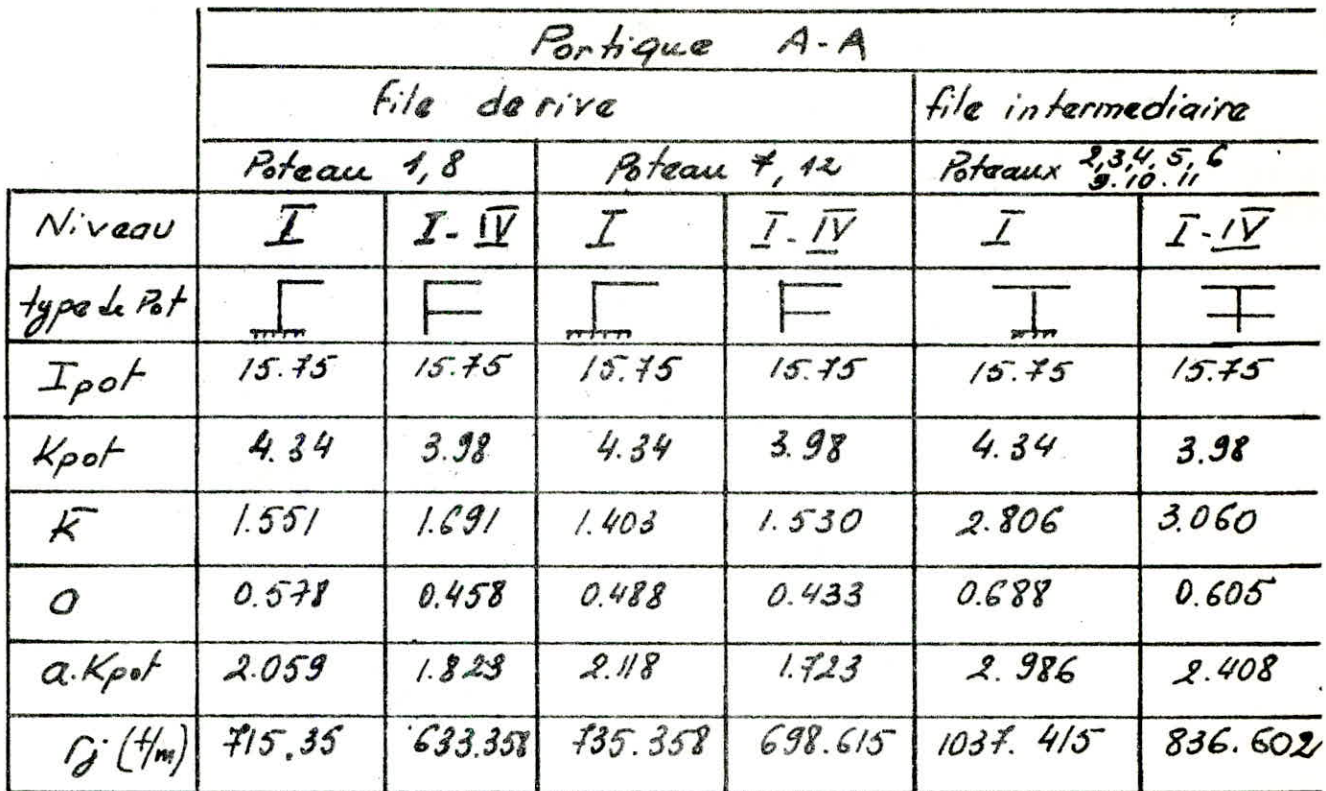 Portique A-A
file de rive file intermediaire
Poteau 1,8 Poteau 7,12 Poteaux 2,3,4,5,6
9.10.11
Niveau I I-IV I I-IV I I-IV
type de Pot
Ipot 15.75 15.75 15.75 15.75 15.75 15.75
Kpot 4.34 3.98 4.34 3.98 4.34 3.98
K̄ 1.551 1.691 1.403 1.530 2.806 3.060
a 0.578 0.458 0.488 0.433 0.688 0.605
a.Kpot 2.059 1.823 2.118 1.723 2.986 2.408
rj (t/m) 715.35 633.358 735.358 698.615 1037.415 836.602